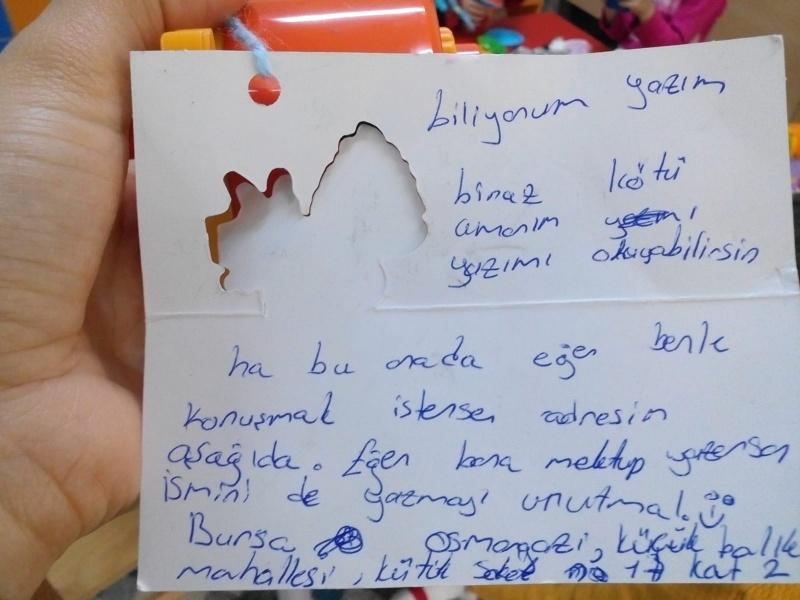 biliyorum yazım
biraz kötü
umarım
yazımı okuyabilirsin
ha bu arada eğer benle
konuşmak istersen adresim
aşağıda. Eğer bana mektup yazarsan
ismini de yazmayı unutma!
Bursa Osmangazi, küçük balıklı
mahallesi, kütük sokak no 17 kat 2